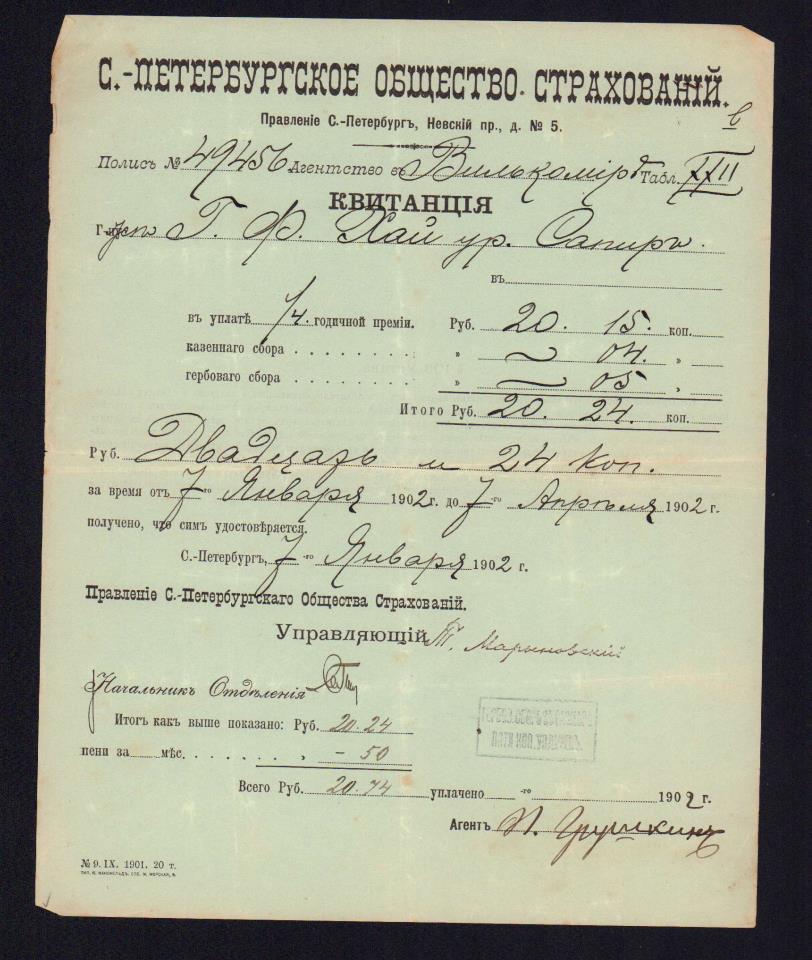 С.-ПЕТЕРБУРГСКОЕ ОБЩЕСТВО СТРАХОВАНІЙ.
Правленіе С.-Петербургъ, Невскій пр., д. № 5.
Полисъ № 49456 Агентство въ Вилькомірѣ Табл. XXII
КВИТАНЦІЯ
Г. Ф. Хай ур. Сапиръ.
въ
въ уплатѣ 1/4 годичной преміи. Руб. 20. 15. коп.
казеннаго сбора " 04. "
гербоваго сбора " 05 "
Итого Руб. 20. 24. коп.
Руб. Двадцать и 24 коп.
за время отъ 7-го Января 1902 г. до 7-го Апрѣля 1902 г.
получено, что симъ удостовѣряется.
С.-Петербургъ, 7-го Января 1902 г.
Правленіе С.-Петербургскаго Общества Страхованій.
Управляющій Т. Марыновскій
Начальникъ Отдѣленія
Итогъ какъ выше показано: Руб. 20.24
пени за мѣс. " - 50
Всего Руб. 20.74 уплачено -го 1902 г.
Агентъ
№ 9. IX. 1901. 20 т.